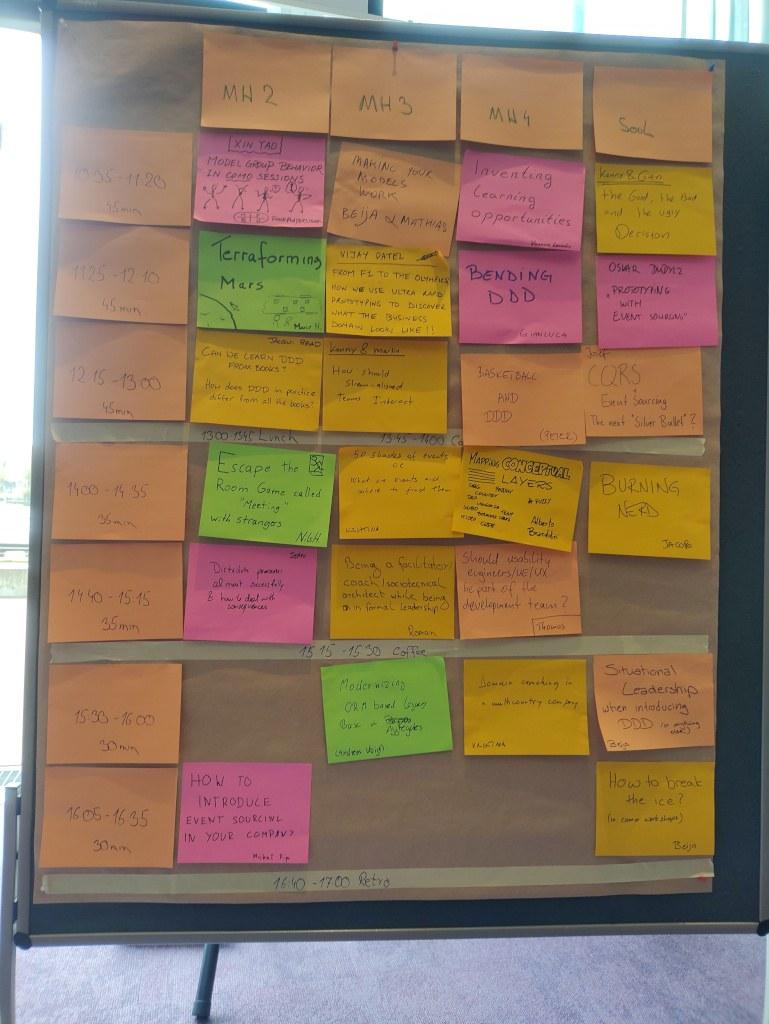 MH 2
MH 3
MH 4
SouL
10 35 - 11:20
45min
XIN YAO
MODEL GROUP BEHAVIOR
IN COMO SESSIONS
MAKING YOUR
MODELS
WORK
BEIJA & MATHIAS
Inventing
Learning
opportunities
Kenny & Gien
the Good, the Bad
and the Ugly
Decision
1125 - 12 10
45min
Terraforming
Mars
VIJAY PATEL
FROM F1 TO THE OLYMPICS
HOW WE USE ULTRA RAPID
PROTOTYPING TO DISCOVER
WHAT THE BUSINESS
DOMAIN LOOK LIKE !!
BENDING
DDD
GIANLUCA
OSKAR
"PROTOTYPING
WITH
EVENT SOURCING"
12 15 - 13:00
45min
JACQUI READ
CAN WE LEARN DDD
FROM BOOKS?
How does DDD in practice
differ from all the books?
Kenny &
How should
Stream-aligned
Teams Interact
BASKETBALL
AND
DDD
(PETER)
Josef
CQRS
Event Sourcing
The next "Silver Bullet"?
1300 1345 Lunch
13:45 - 1400 Co
1400 - 14:35
35min
Escape the
Room Game called
"Meeting"
with strangers
50 shades of events
or
What are events and
where to find them
VALENTINA
MAPPING CONCEPTUAL
LAYERS
Alberto
Brandolini
BURNING
NERD
JACOB
1440 - 15:15
35min
almost successfully
& how to deal with
consequences
Being a facilitator/
coach/sociotechnical
architect while being
in formal leadership)
Romain
Should usability
engineers/UE/UX
be part of the
development team?
Thomas
15 15 - 15:30 Coffee
15:30 - 16:00
30min
Modernizing
ORM based legacy
Aggregates
(Andreas Voigt)
Domain
a multicountry company
VALENTINA
Situational
Leadership
when introducing
DDD (or anything
else)
Beija
16:05 - 16:35
30min
HOW TO
INTRODUCE
EVENT SOURCING
IN YOUR COMPANY?
How to break
the ice?
(in como workshops)
Beija
16:40 - 17:00 Retro